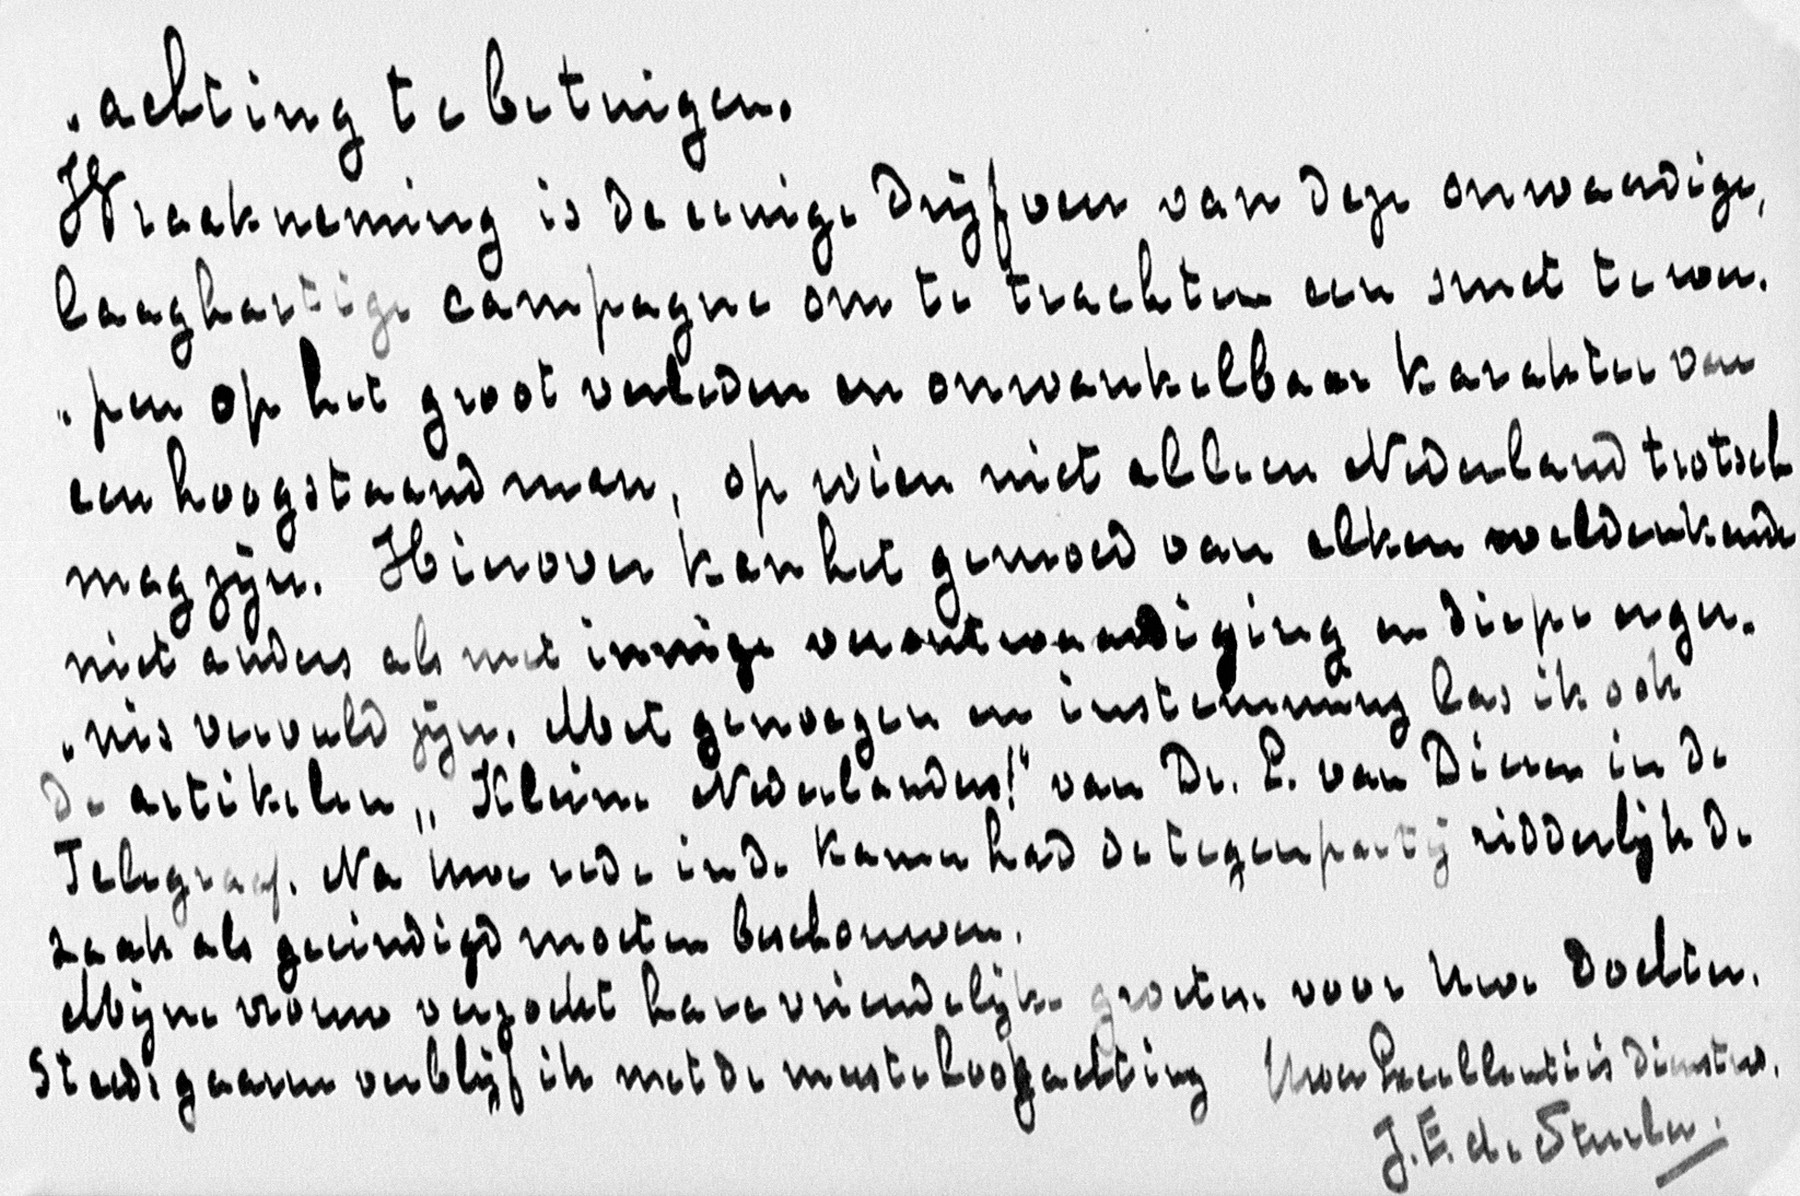 „achting te betuigen.
Wraakneming is de eenige drijfveer van deze onwaardige,
laaghartige campagne om te trachten een smet te wer-
„pen op het groot verleden en onwankelbaar karakter van
een hoogstaand man, op wien niet alleen Nederland trotsch
mag zijn. Hierover kan het gemoed van elken weldenkende
niet anders als met innige verontwaardiging en diepe erger-
„nis vervuld zijn. Met genoegen en instemming las ik ook
de artikelen „Kleine Nederlanders!" van Dr. E. van Dieren in de
Telegraaf. Na Uwe rede in de Kamer had de tegenpartij ridderlijk de
zaak als geëindigd moeten beschouwen.
Mijne vrouw verzoekt hare vriendelijke groeten voor Uwe Dochter.
Steeds gaarne verblijf ik met de meeste hoogachting Uwer Excellentie's dienstw.
J. E. de Sturler.